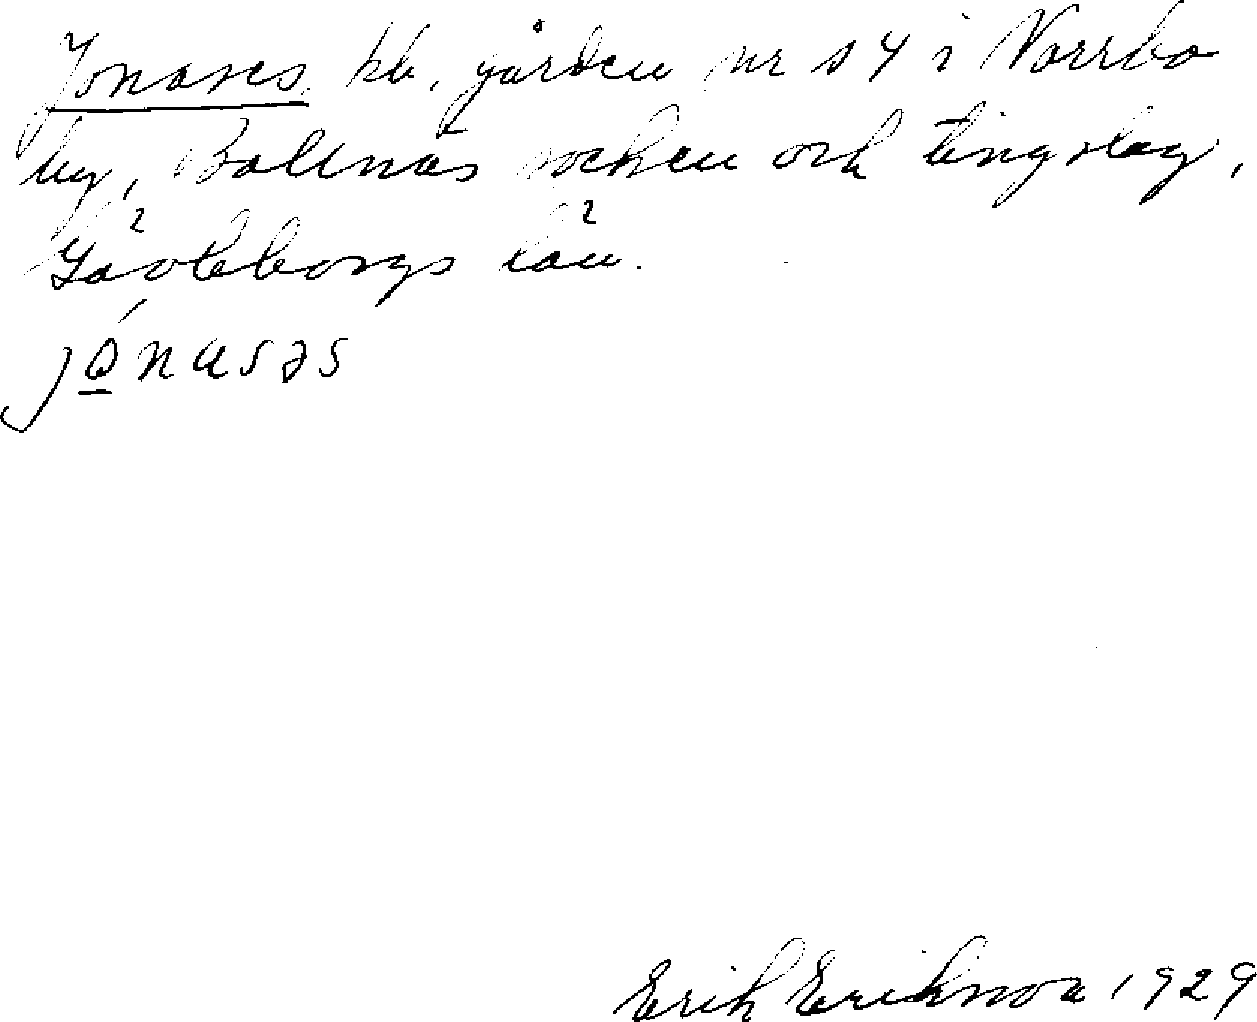 Jonases kb, gården nr 14 i Norrbo
by, Bollnäs socken och tingslag,
Gävleborgs län.
jo̲nasəs
Erik Erikson 1929